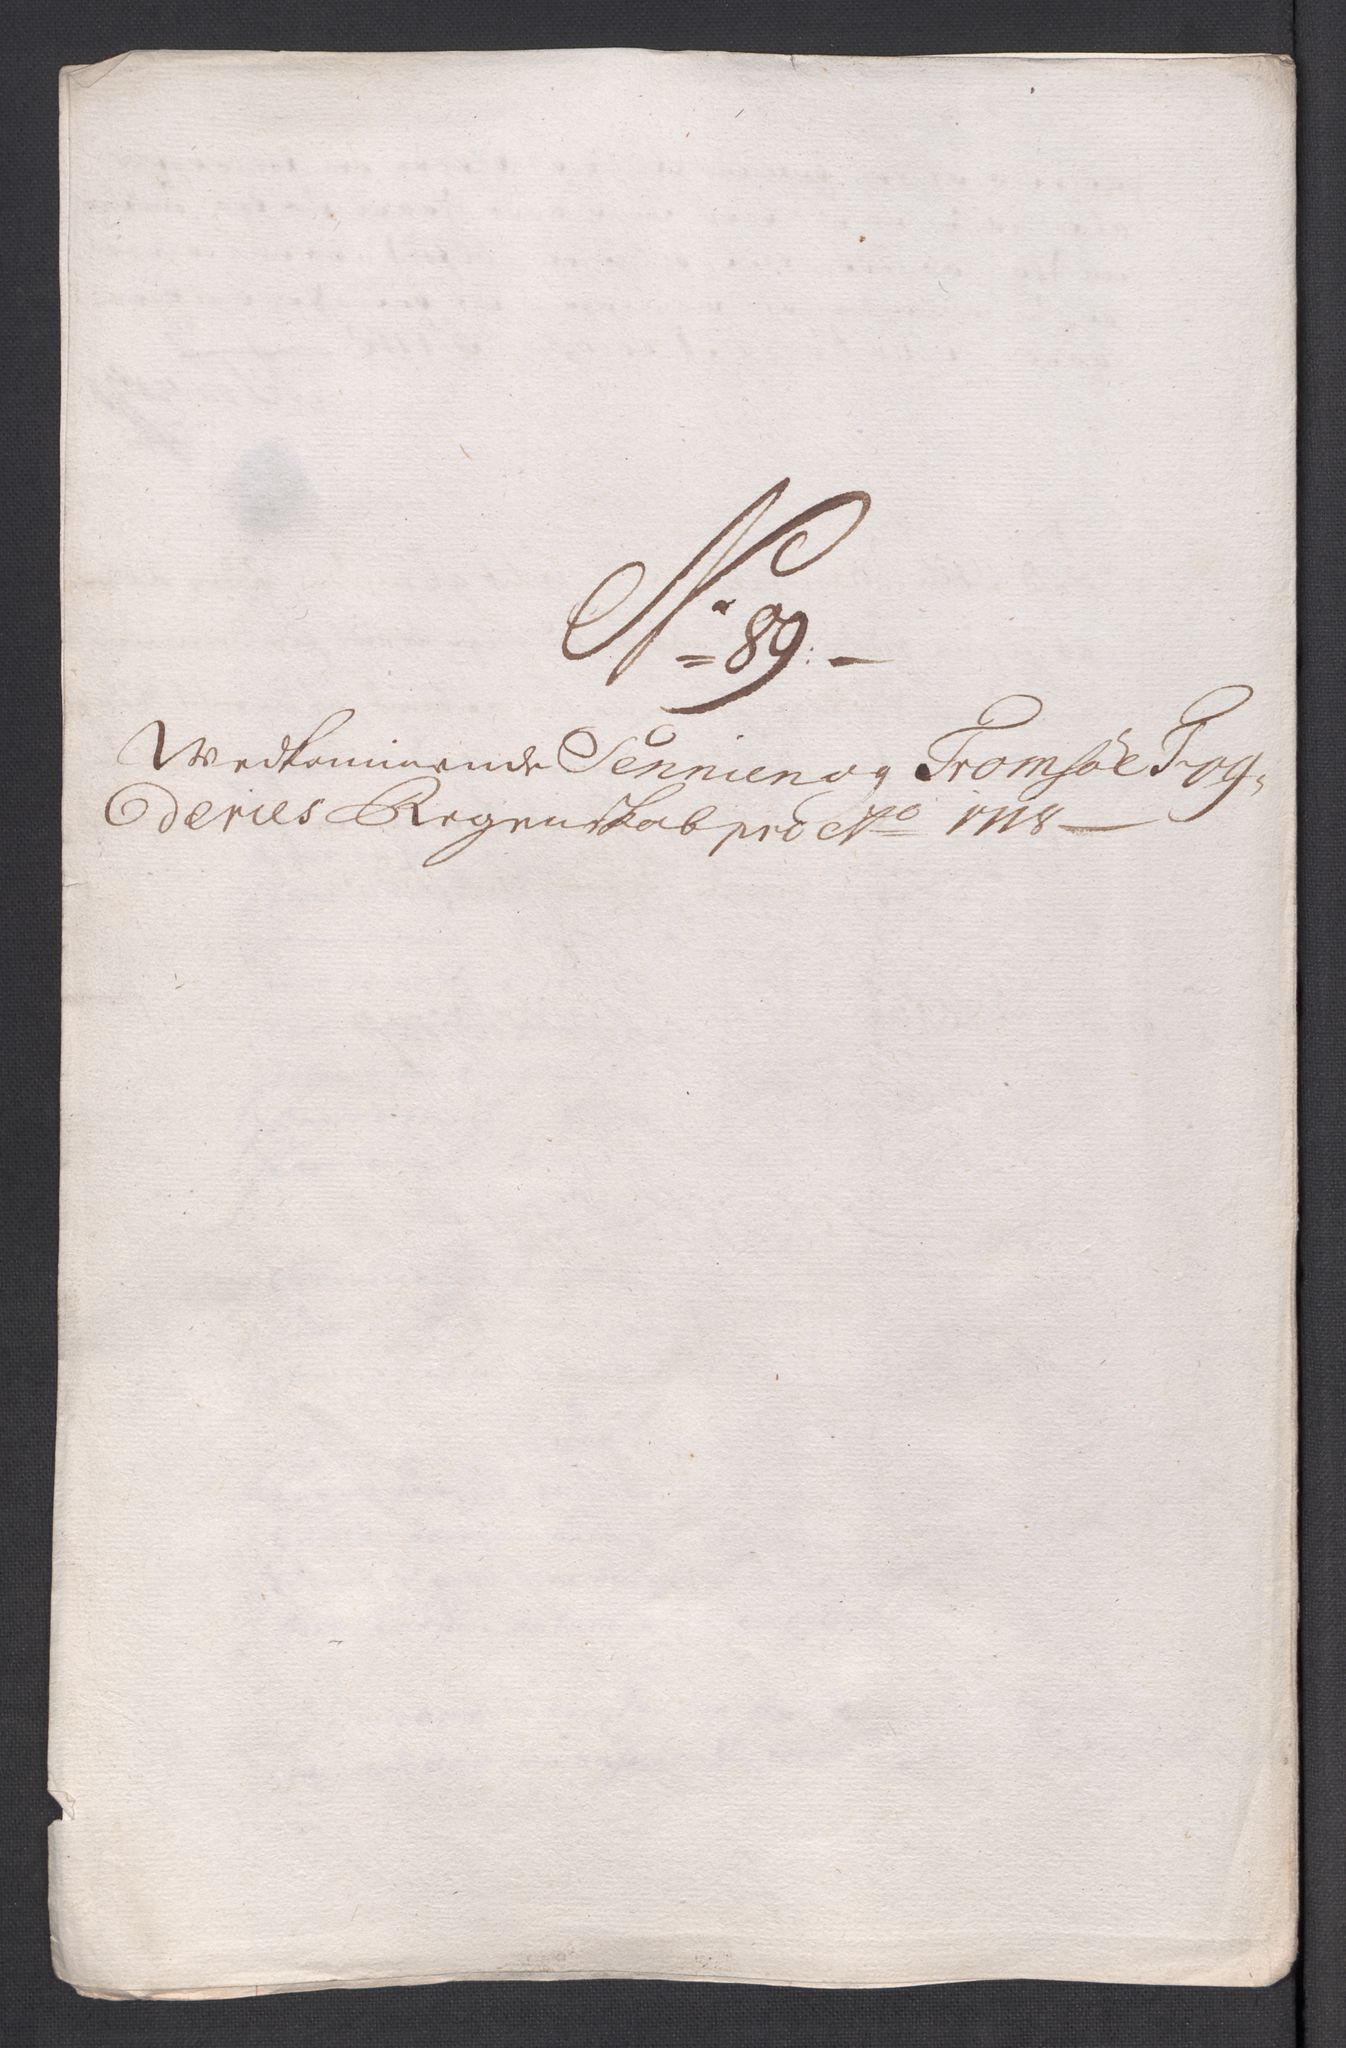 No 89.
Wedkommende Sennien og Tromsøe Fog,
deries Regenskab pro Ao 1718